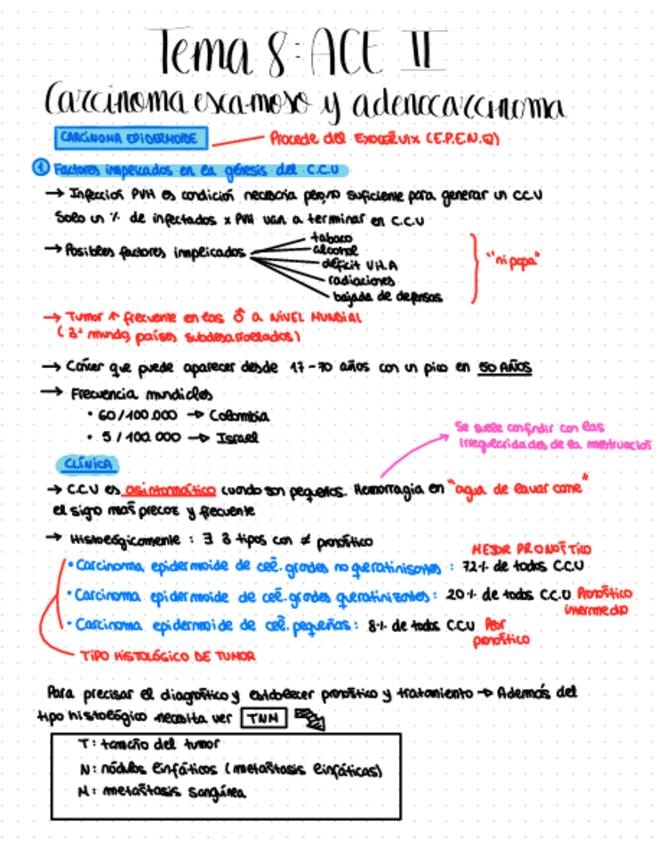 Tema 8: ACE II
Carcinoma escamoso y adenocarcinoma
CARCINOMA EPIDERMOIDE → Procede del Exocérvix (E.P.E.N.Q)
① Factores implicados en la génesis del C.C.U
→ Infección PVH es condición necesaria pero no suficiente para generar un CCU
Solo un % de infectados x PVH van a terminar en C.C.U
→ Posibles factores implicados
tabaco
alcohol
déficit Vit.A
radiaciones
bajada de defensas
"ni papa"
→ Tumor ↑ frecuente en las ♂ a NIVEL MUNDIAL
(3º mundo, países subdesarrollados)
→ Cáncer que puede aparecer desde 17-70 años con un pico en 50 AÑOS
→ Frecuencia mundiales
• 60/100.000 → Colombia
• 5 / 100.000 → Israel
Se suele confundir con las
irregularidades de la menstruación
CLÍNICA
→ C.C.U es asintomático cuando son pequeños. Hemorragia en "agua de lavar carne"
el signo más precoz y frecuente
→ Histológicamente : ∃ 3 tipos con ≠ pronóstico
MEJOR PRONÓSTICO
• Carcinoma epidermoide de cél. grandes no queratinizantes : 72% de todos C.C.U
• Carcinoma epidermoide de cél. grandes queratinizantes : 20% de todos C.C.U Pronóstico
intermedio
• Carcinoma epidermoide de cél. pequeñas : 8% de todos C.C.U Peor
pronóstico
TIPO HISTOLÓGICO DE TUMOR
Para precisar el diagnóstico y establecer pronóstico y tratamiento → Además del
tipo histológico necesita ver TNM
T : tamaño del tumor
N : nódulos linfáticos (metástasis linfáticas)
M : metástasis sanguínea